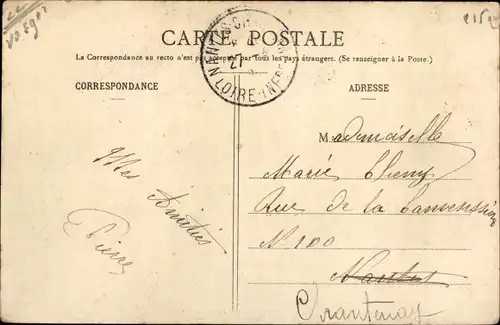 CARTE POSTALE
La Correspondance au recto n'est pas acceptée par tous les pays étrangers. (Se renseigner à la Poste.)
CORRESPONDANCE
ADRESSE
LOIRE-INFRE
Mes Amitiés
Pierre
Mademoiselle
Marie
Rue de la Convention
N 100
Nantes
Chantenay